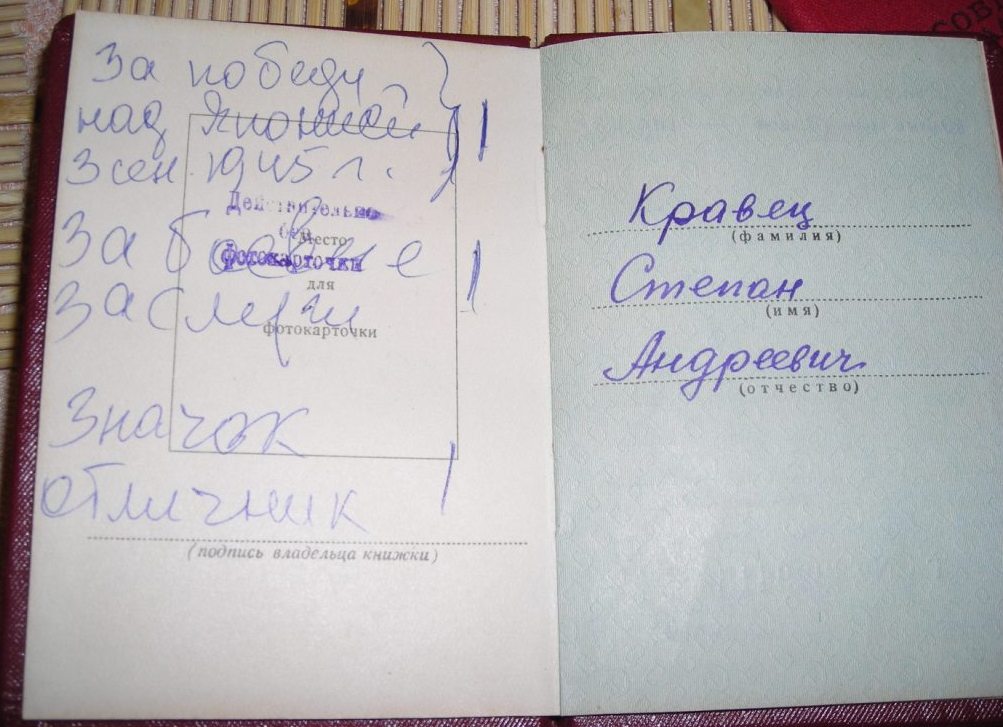 За победу
над Японией
3 сен 1945 г.
Действительно
без
Место
фотокарточки
для
фотокарточки
За боевые
заслуги
Значок
отличник
(подпись владельца книжки)
СОВ
Кравец
(фамилия)
Степан
(имя)
Андреевич
(отчество)